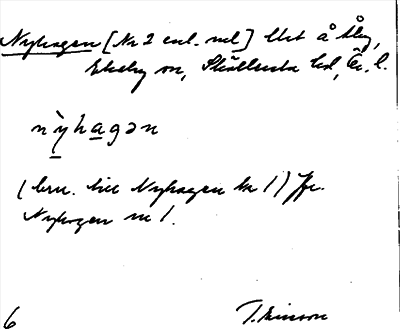 Nyhagen [Nr 2 enl. uel] Utst å Åby,
Ekeby sn, Sköllersta hd, Ör. l.
nỳhagən
(ben. till Nyhagen Nr 1) Jfr.
Nyhagen nr 1.
6 T. Ericsson